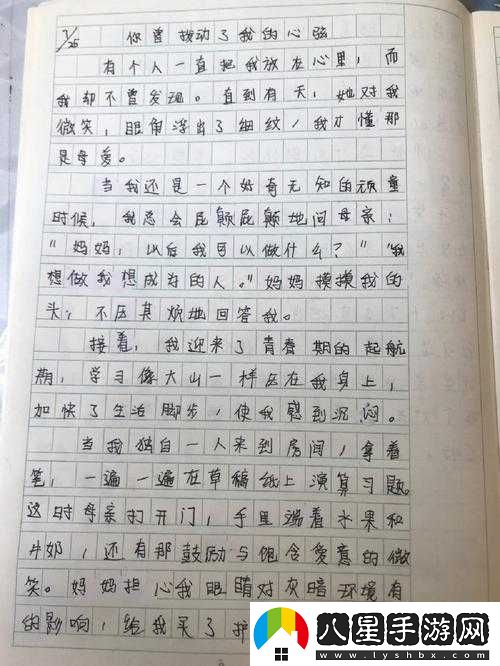 7/26
你曾拨动了我的心弦
有个人一直把我放在心里，而
我却不曾发现。直到有天，她对我
微笑，眼角浮出了细纹，我才懂那
是母爱。
当我还是一个好奇无知的顽童
时候，我总会屁颠屁颠地问母亲：
“妈妈，以后我可以做什么？”“做
想做我想成为的人。”妈妈摸摸我的
头，不厌其烦地回答我。
接着，我迎来了青春期的起航
期，学习像大山一样压在我身上，
加快了生活脚步，使我感到沉闷。
当我独自一人来到房间，拿着
笔，一遍一遍在草稿纸上演算习题。
这时母亲打开门，手里端着水果和
牛奶，还有那鼓励与饱含爱意的微
笑。妈妈担心我眼睛对灰暗环境有
的影响，给我买了护
八星手游网
www.lyshbx.com